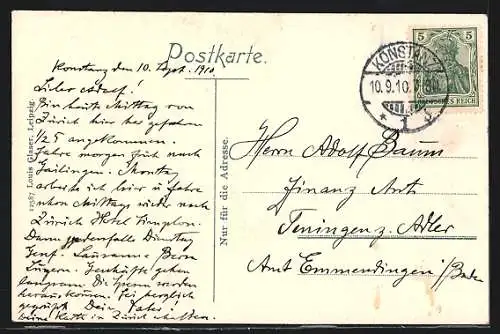 Postkarte.
Konstanz den 10. Sept. 1910
Lieber Adolf!
Bin heute Mittag von
Zürich hier her gefahren
1/2 5 angekommen.
Fahre morgen früh nach
Gailingen. Montag
arbeite ich hier u fahre
schon Mittags wieder nach
Zürich Hotel Simplon.
Dann jedenfalls Dienstag
Genf. Lausanne Bern
Luzern. Geschäfte gehen
langsam. Die Spesen werden
herauskommen. Sei herzlich
gegrüßt Dein Vater
Karte in Zürich erhalten.
Louis Glaser, Leipzig.
Nur für die Adresse.
5 5
DEUTSCHES REICH
KONSTANZ
10.9.10.
* 1 *
Herrn Adolf Baum
Finanz Amt
Teningen z. Adler
Amt Emmendingen i/Baden